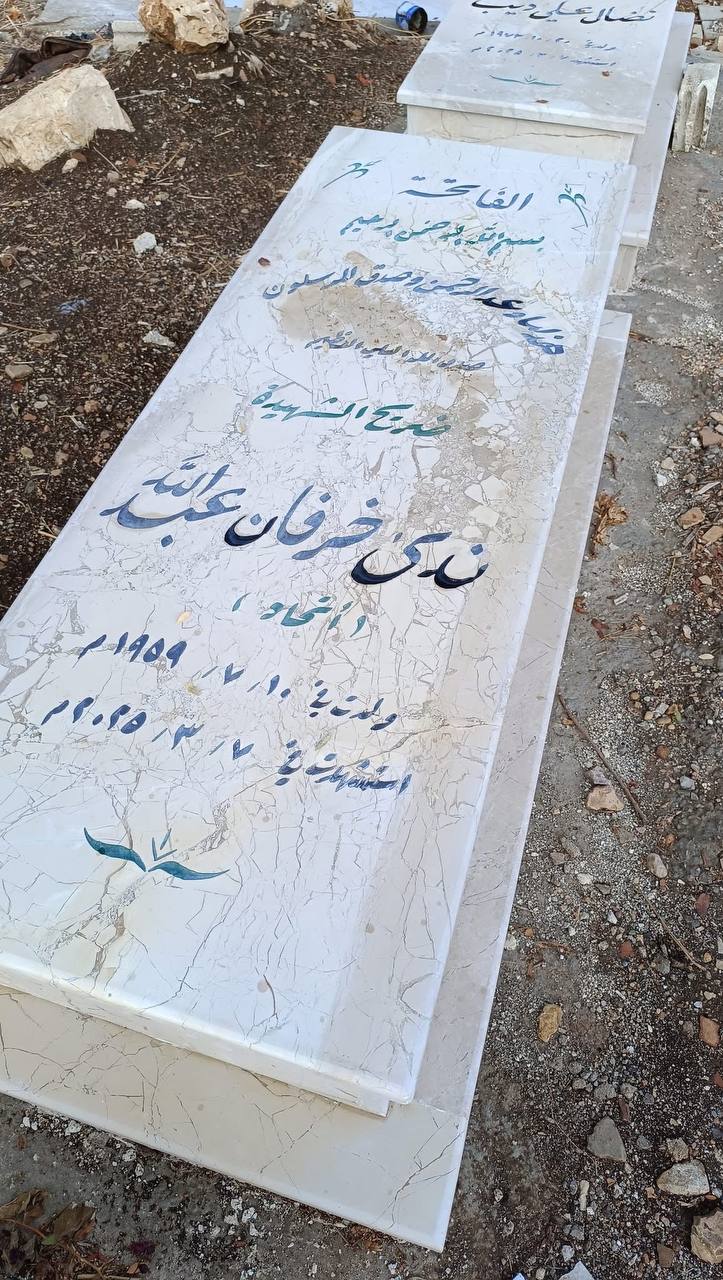 نضال علي ديب
ولدت ١٩٧٣/١٠/٢٠م
استشهد ٢٠٢٥/٣/٧م
الفاتحة
بسم الله الرحمن الرحيم
هذا ما وعد الرحمن وصدق المرسلون
صدق الله العلي العظيم
ضريح الشهيدة
ندى خرفان عبد الله
ولدت في ١٠/ ٧/ ١٩٥٩م
استشهدت في ٧/ ٣/ ٢٠٢٥م